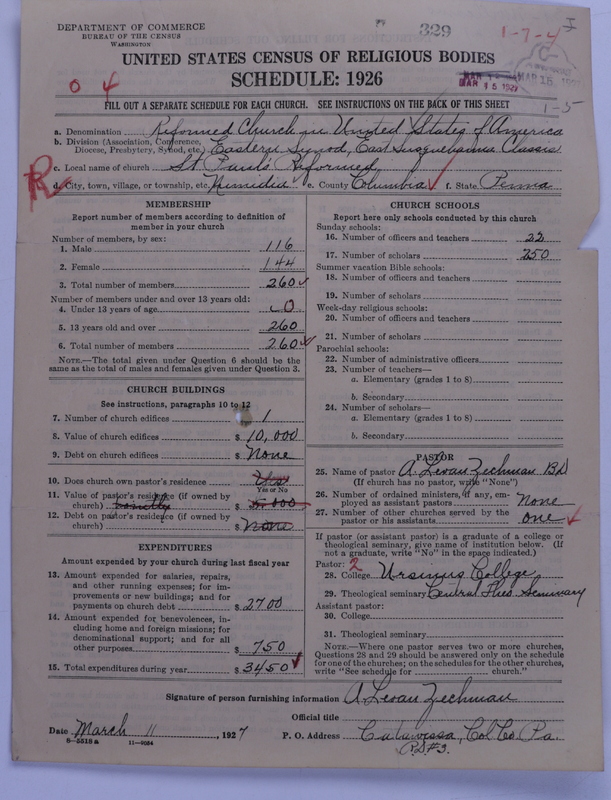 DEPARTMENT OF COMMERCE
BUREAU OF THE CENSUS
WASHINGTON
329
1-7-4
I
UNITED STATES CENSUS OF RELIGIOUS BODIES
SCHEDULE: 1926
0 4
MAR 15 1927
FILL OUT A SEPARATE SCHEDULE FOR EACH CHURCH. SEE INSTRUCTIONS ON THE BACK OF THIS SHEET
1-5
a. Denomination Reformed Church in United States of America
b. Division (Association, Conference, Diocese, Presbytery, Synod, etc.) Eastern Synod, East Susquehanna Classis
c. Local name of church St Paul's Reformed
R
d. City, town, village, or township, etc. Numidia e. County Columbia f. State Penna
MEMBERSHIP
Report number of members according to definition of
member in your church
Number of members, by sex:
1. Male 116
2. Female 144
3. Total number of members 260
Number of members under and over 13 years old:
4. Under 13 years of age 0
5. 13 years old and over 260
6. Total number of members 260
NOTE.—The total given under Question 6 should be
the same as the total of males and females given under Question 3.
CHURCH BUILDINGS
See instructions, paragraphs 10 to 12
7. Number of church edifices 1
8. Value of church edifices $ 10,000
9. Debt on church edifices $ None
10. Does church own pastor's residence Yes
Yes or No
11. Value of pastor's residence (if owned by
church) Jointly $ 5000
12. Debt on pastor's residence (if owned by
church) $ None
EXPENDITURES
Amount expended by your church during last fiscal year
13. Amount expended for salaries, repairs,
and other running expenses; for im-
provements or new buildings; and for
payments on church debt $ 2700
14. Amount expended for benevolences, in-
cluding home and foreign missions; for
denominational support; and for all
other purposes $ 750
15. Total expenditures during year $ 3450
CHURCH SCHOOLS
Report here only schools conducted by this church
Sunday schools:
16. Number of officers and teachers 22
17. Number of scholars 250
Summer vacation Bible schools:
18. Number of officers and teachers
19. Number of scholars
Week-day religious schools:
20. Number of officers and teachers
21. Number of scholars
Parochial schools:
22. Number of administrative officers
23. Number of teachers—
a. Elementary (grades 1 to 8)
b. Secondary
24. Number of scholars—
a. Elementary (grades 1 to 8)
b. Secondary
PASTOR
25. Name of pastor A. Levan Zechman BD
(If church has no pastor, write "None")
26. Number of ordained ministers, if any, em-
ployed as assistant pastors None
27. Number of other churches served by the
pastor or his assistants one
If pastor (or assistant pastor) is a graduate of a college or
theological seminary, give name of institution below. (If
not a graduate, write "No" in the space indicated.)
Pastor: 2
28. College Ursinus College
29. Theological seminary Central Theo. Seminary
Assistant pastor:
30. College
31. Theological seminary
NOTE.—Where one pastor serves two or more churches,
Questions 28 and 29 should be answered only on the schedule
for one of the churches; on the schedules for the other churches,
write "See schedule for church."
Signature of person furnishing information A. Levan Zechman
Official title
Date March 11, 1927 P. O. Address Catawissa, Col. Co. Pa.
8-5518a 11-9054
R.D.#3.